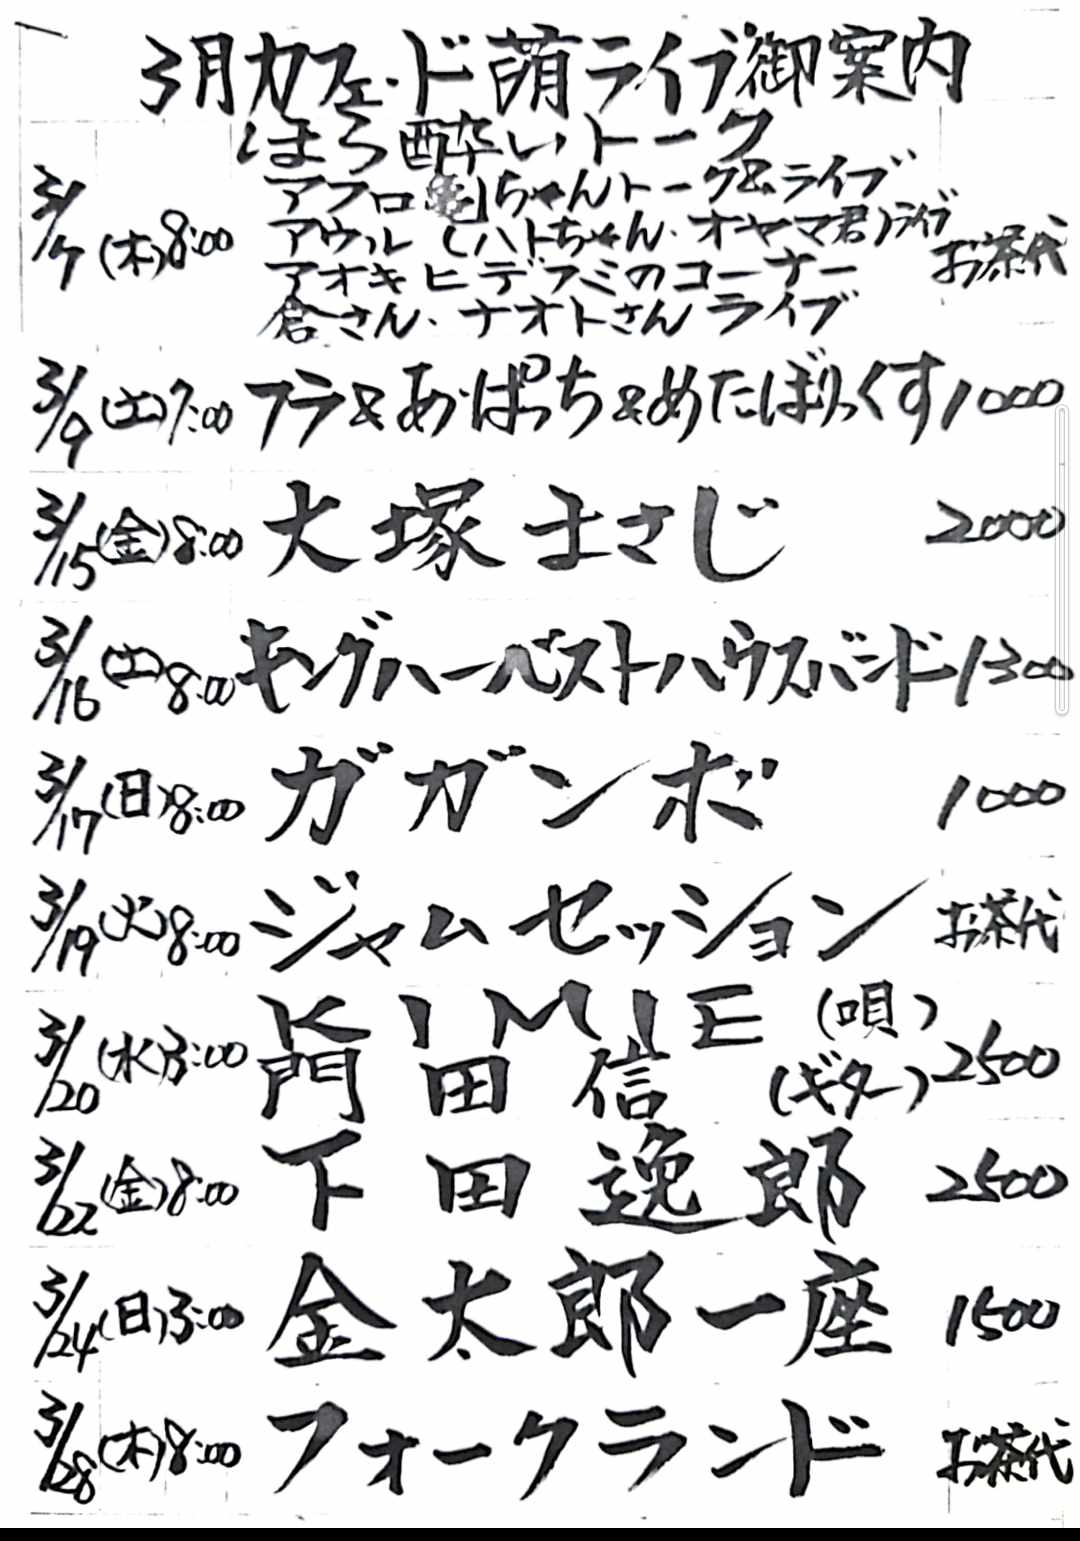 3月カフェ・ド萠ライブ御案内
ほろ酔いトーク
3/7 (木) 8:00 アフロ亀ちゃんトーク&ライブ
アウル (ハトちゃん・オヤマ君) ライブ お茶代
アオキヒデフミのコーナー
倉さん・ナオトさん ライブ
3/9 (土) 7:00 フラ&あ・ぱっち&めたぼりっくす 1000
3/15 (金) 8:00 大塚まさじ 2000
3/16 (土) 8:00 キングハーベストハウスバンド 1300
3/17 (日) 8:00 ガガンボ 1000
3/19 (火) 8:00 ジャムセッション お茶代
3/20 (水) 3:00 KIMIE (唄) 2500
門田信 (ギター)
3/22 (金) 8:00 下田逸郎 2500
3/24 (日) 3:00 金太郎一座 1500
3/28 (木) 8:00 フォークランド お茶代